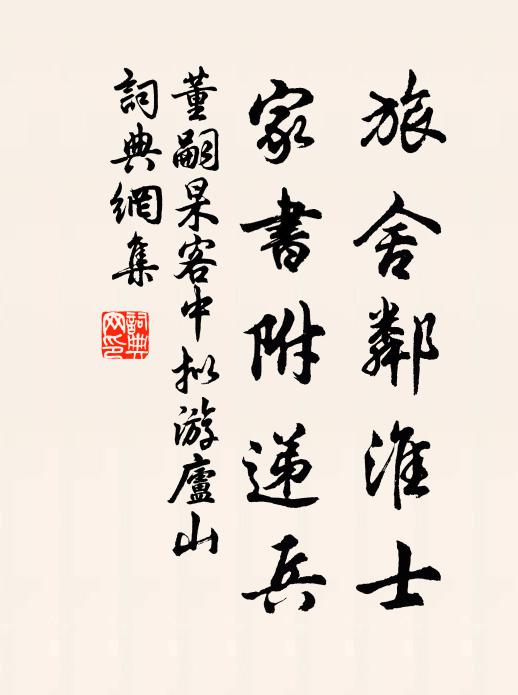 旅舍鄰淮士
家書附递兵
董嗣杲客中拟游廬山
詞典網集
詞典網印